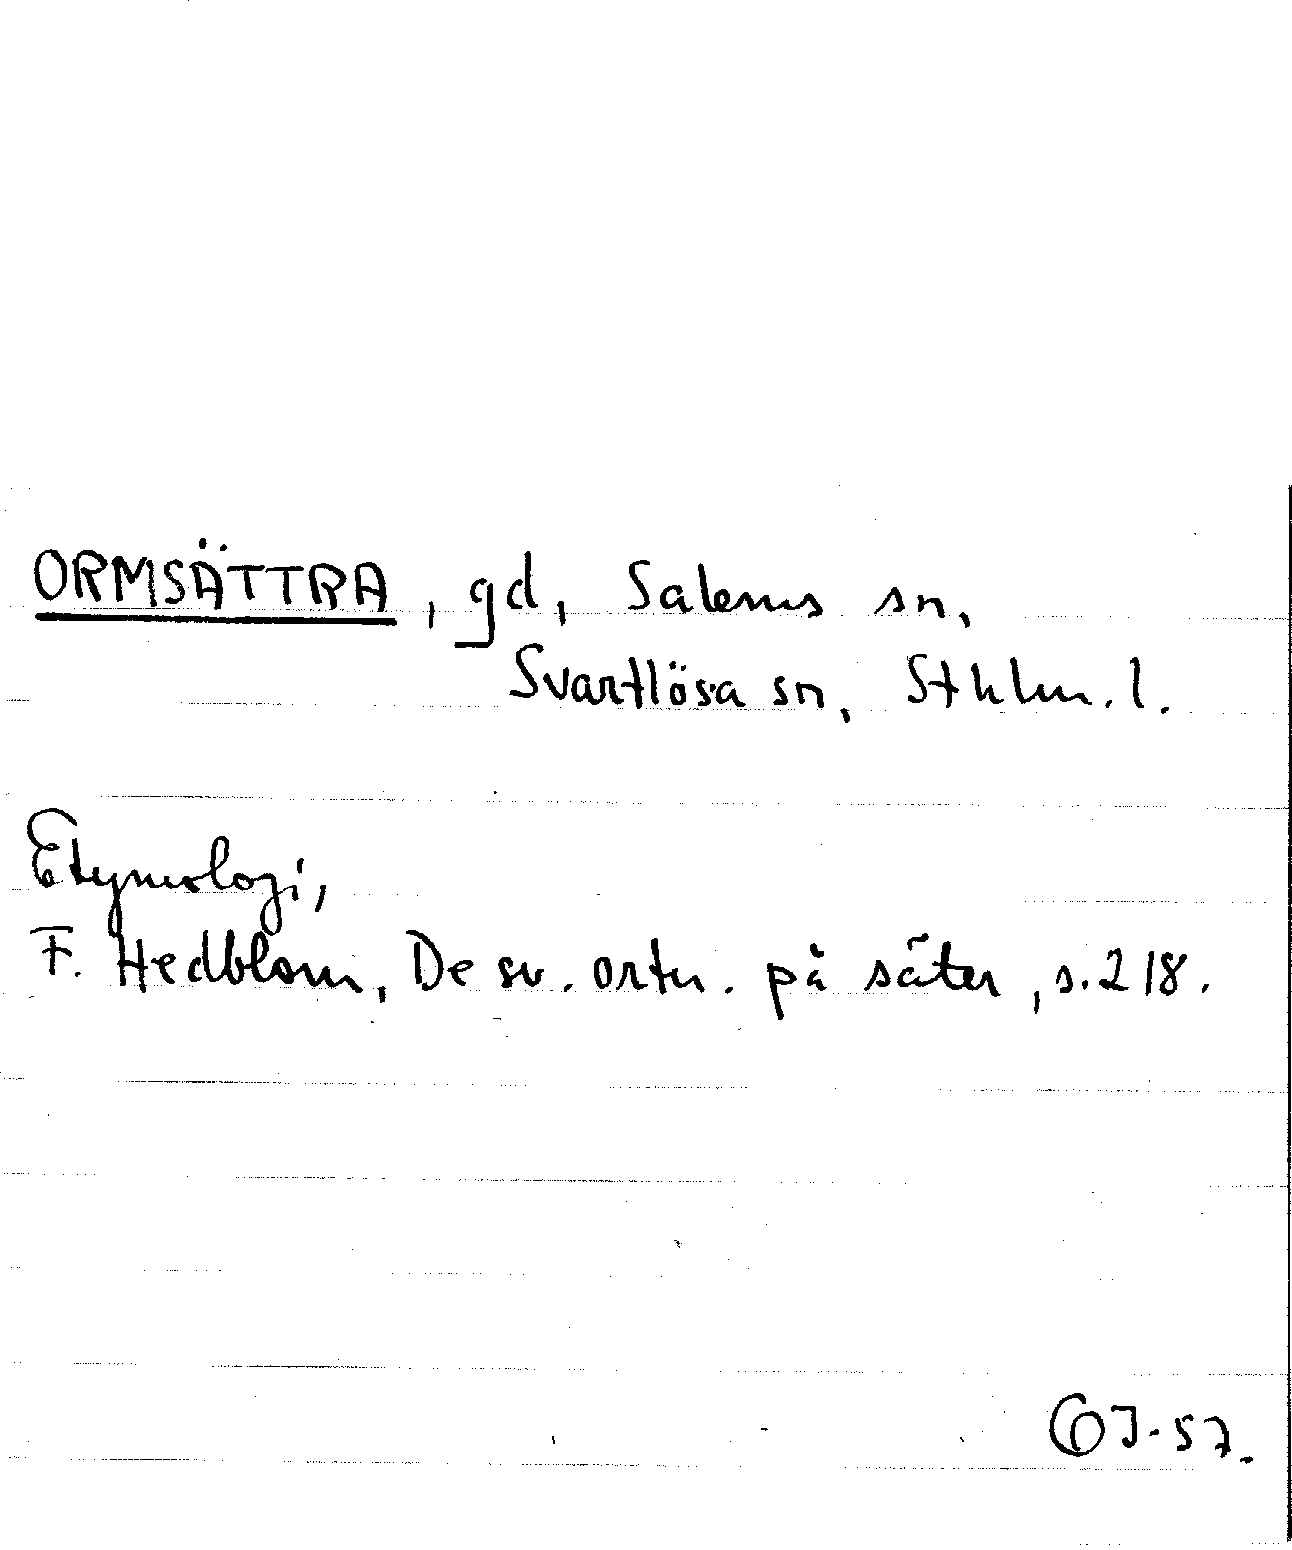 ORMSÄTTRA, gd, Salems sn,
Svartlösa sn, Sthlm. l.
Etymologi,
F. Hedblom, De sv. ortn. på säter, s. 218.
57.